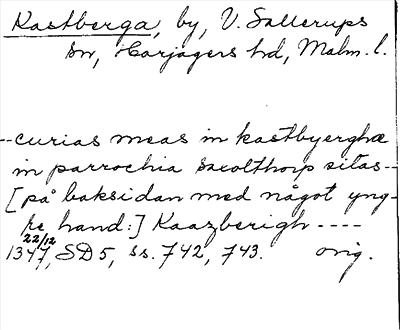 Kastberga, by, V. Sallerups
sn, Harjagers hd, Malm. l.
--curias meas in kastbyerghæ
in parrochia saxolthorp sitas--
[på baksidan med något yng-
re hand:] Kaazberigh ----
22/12
1347, SD 5, ss. 742, 743. orig.